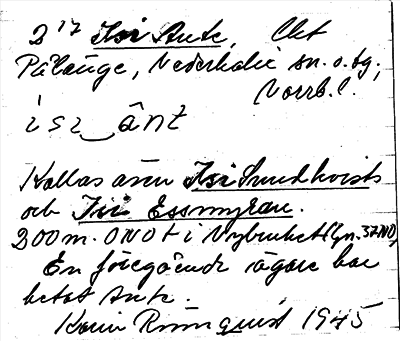 2¹⁷ Isi Ante, Ckt
Pålänge, Nederkalix sn. o. tg.,
Norrb. l.
isi‿ânt
Kallas även Isi Sundkvists
och Isi Essmyran.
200 m. ONO t i Nybruket
En föregående ägare har
hetat Ante.
Karin Rönnquist 1945